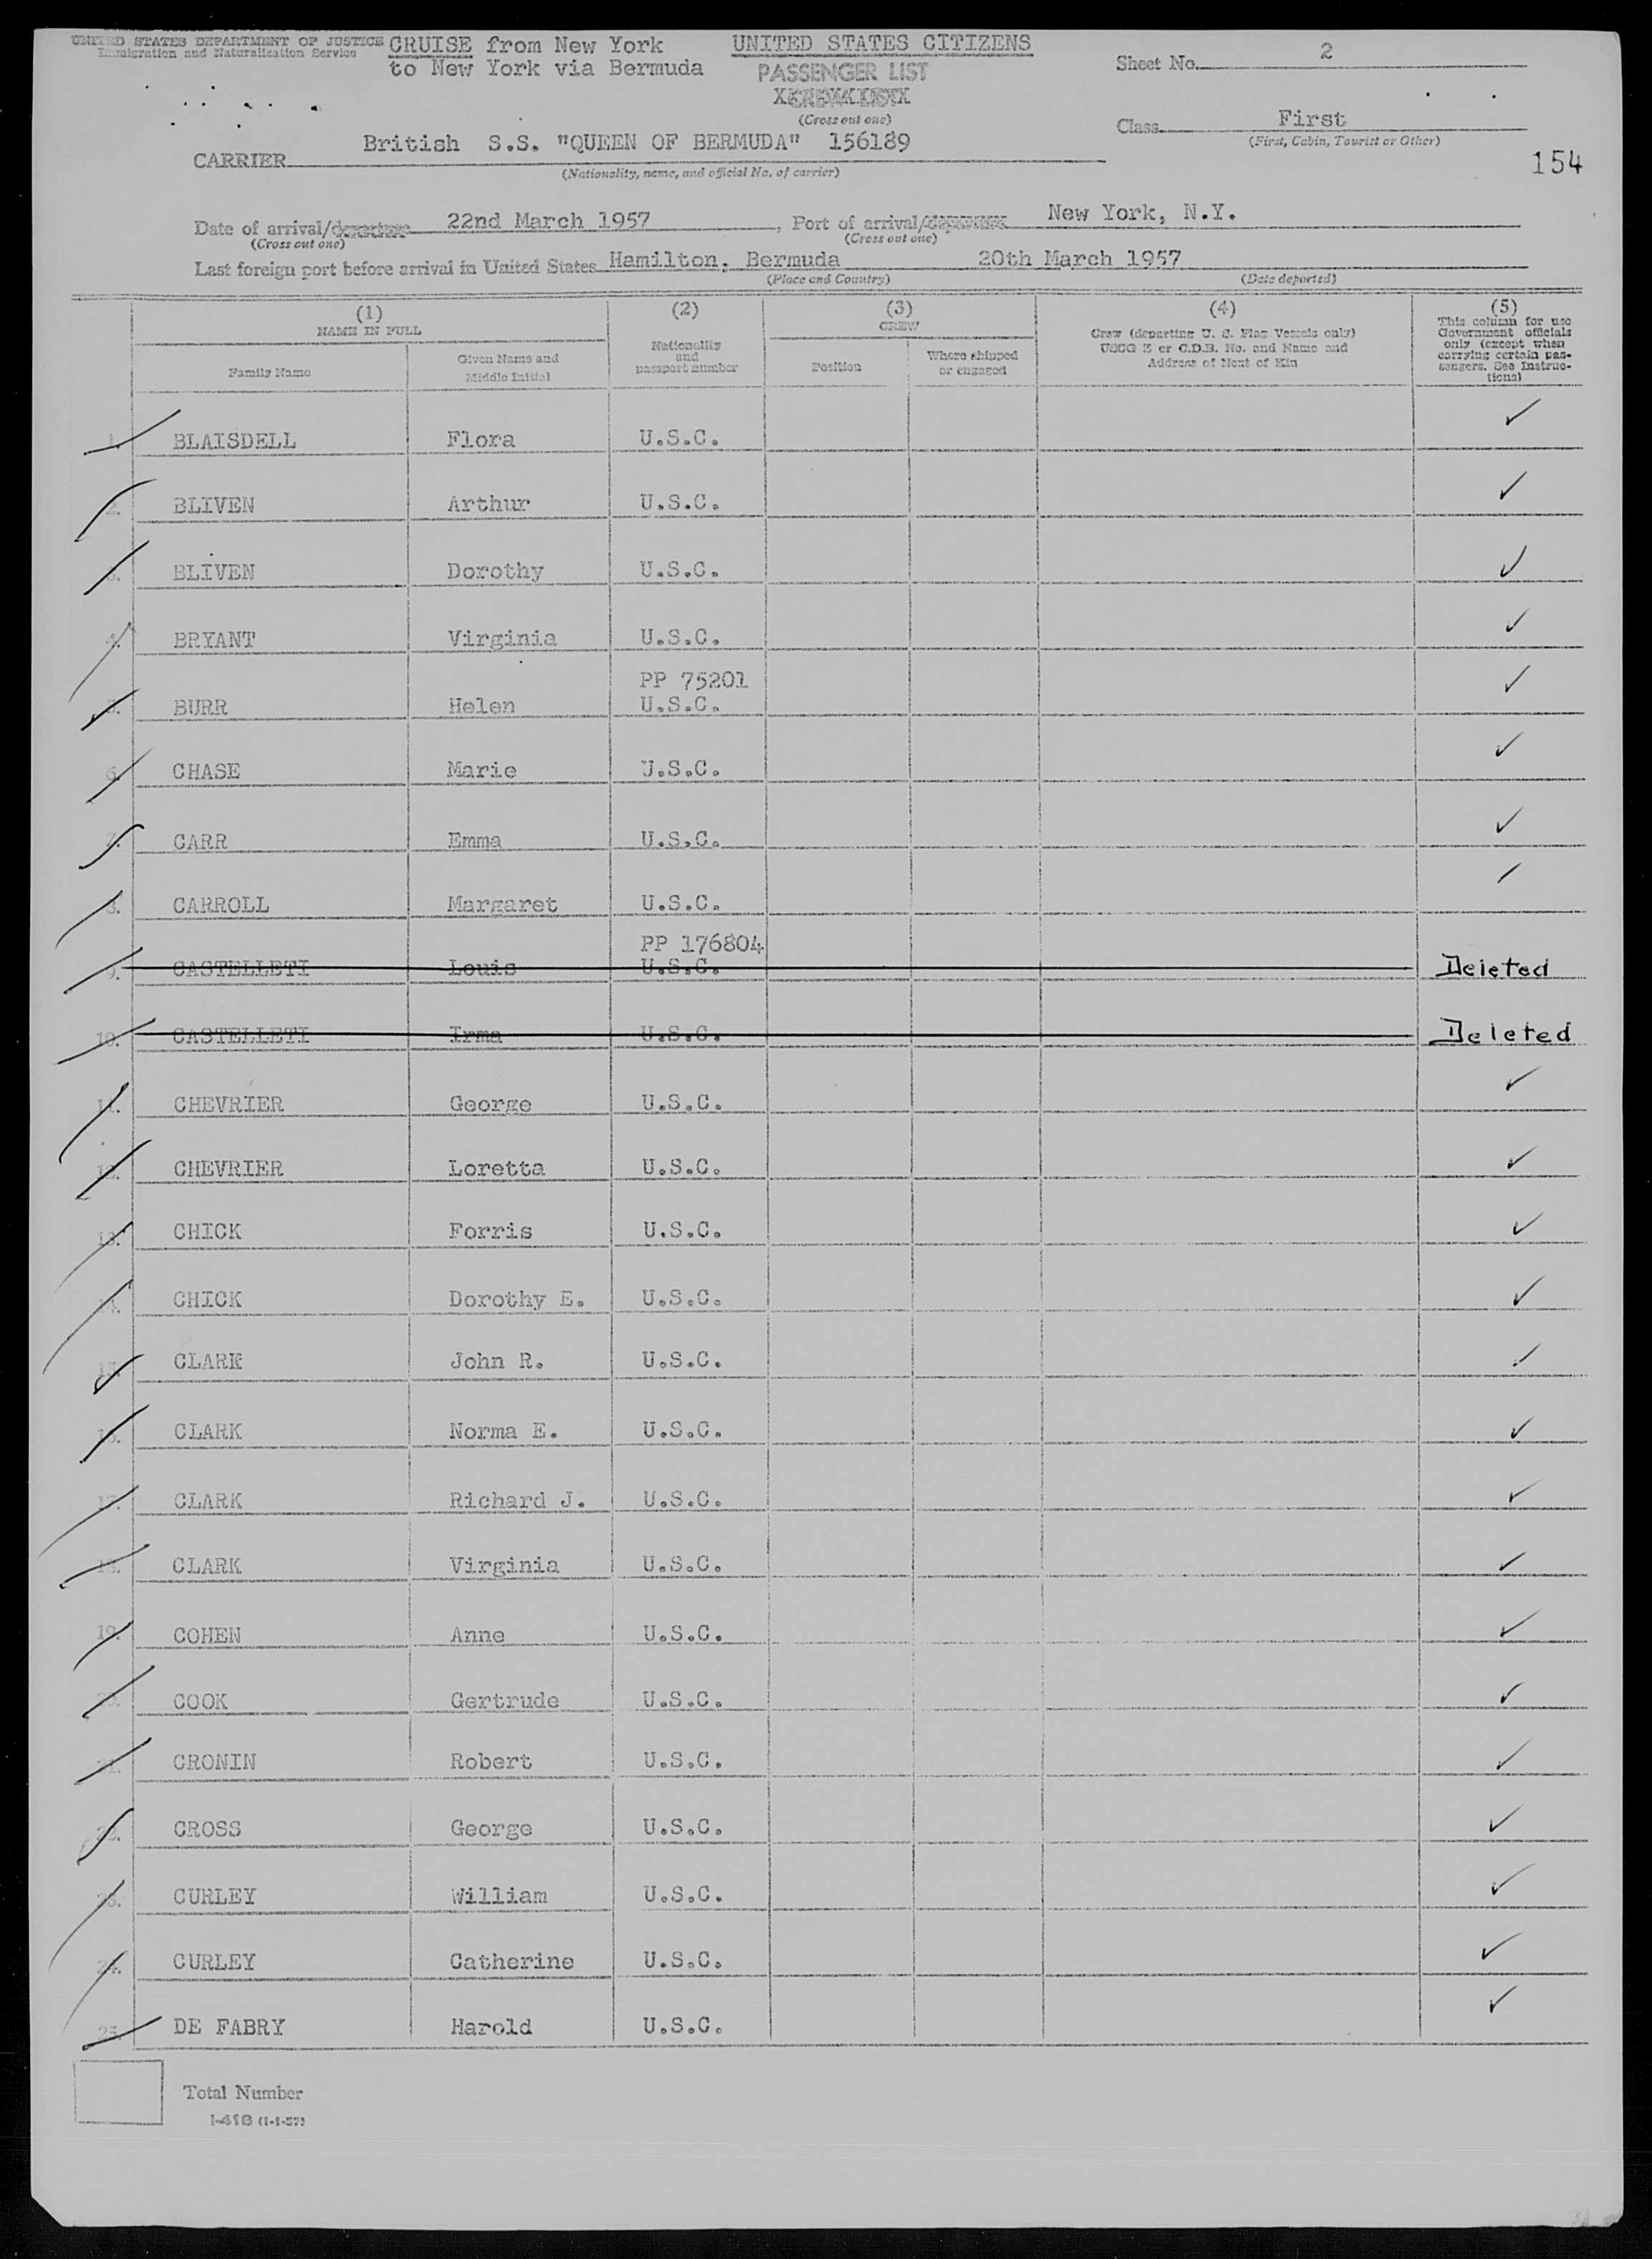 UNITED STATES DEPARTMENT OF JUSTICE
Immigration and Naturalization Service
CRUISE from New York
to New York via Bermuda
UNITED STATES CITIZENS
PASSENGER LIST
CREW LIST
(Cross out one)
Sheet No. 2
Class First
(First, Cabin, Tourist or Other)
154
CARRIER British S.S. "QUEEN OF BERMUDA" 156189
(Nationality, name, and official No. of carrier)
Date of arrival/departure 22nd March 1957, Port of arrival/departure New York, N.Y.
(Cross out one) (Cross out one)
Last foreign port before arrival in United States Hamilton, Bermuda 20th March 1957
(Place and Country) (Date departed)
(1)
NAME IN FULL
Family Name
Given Name and
Middle Initial
(2)
Nationality
and
passport number
(3)
CREW
Position
Where shipped
or engaged
(4)
Crew (departing U. S. Flag Vessels only)
USCG Z or C.D.B. No. and Name and
Address of Next of Kin
(5)
This column for use
Government officials
only (except when
carrying certain pas-
sengers. See Instruc-
tions)
1. BLAISDELL Flora U.S.C. ✓
2. BLIVEN Arthur U.S.C. ✓
3. BLIVEN Dorothy U.S.C. ✓
4. BRYANT Virginia U.S.C. ✓
PP 75201
5. BURR Helen U.S.C. ✓
6. CHASE Marie U.S.C. ✓
7. CARR Emma U.S.C. ✓
8. CARROLL Margaret U.S.C.
PP 176804
9. CASTELLETI Louis U.S.C. Deleted
10. CASTELLETI Irma U.S.C. Deleted
11. CHEVRIER George U.S.C. ✓
12. CHEVRIER Loretta U.S.C. ✓
13. CHICK Forris U.S.C. ✓
14. CHICK Dorothy E. U.S.C. ✓
15. CLARK John R. U.S.C. ✓
16. CLARK Norma E. U.S.C. ✓
17. CLARK Richard J. U.S.C. ✓
18. CLARK Virginia U.S.C. ✓
19. COHEN Anne U.S.C. ✓
20. COOK Gertrude U.S.C. ✓
21. CRONIN Robert U.S.C. ✓
22. CROSS George U.S.C. ✓
23. CURLEY William U.S.C. ✓
24. CURLEY Catherine U.S.C. ✓
25. DE FABRY Harold U.S.C. ✓
Total Number
I-418 (1-1-57)